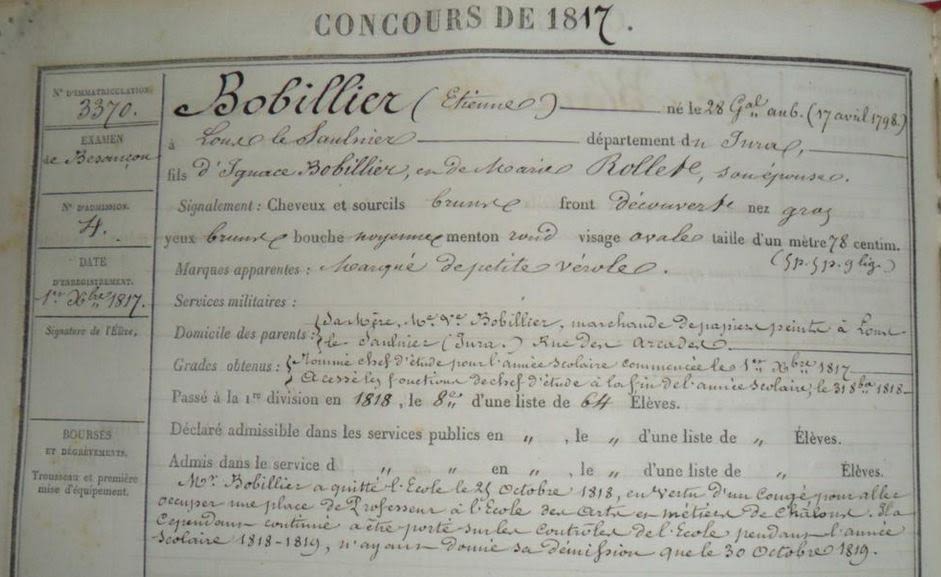 CONCOURS DE 1817.
N° D'IMMATRICULATION
3370.
EXAMEN
de Besançon
N° D'ADMISSION.
4.
DATE
D'ENREGISTREMENT.
1er Xbre 1817.
Signature de l'Élève,
BOURSES
ET DÉGRÈVEMENTS.
Trousseau et première
mise d'équipement.
Bobillier (Etienne) né le 28 Gal an 6. (17 avril 1798.)
à Lons le Saulnier département du Jura,
fils d'Ignace Bobillier, et de Marie Rollet, son épouse.
Signalement : Cheveux et sourcils bruns front découvert nez gros
yeux bruns bouche moyenne menton rond visage ovale taille d'un mètre 78 centim.
(5p. 5p. 9 lig.)
Marques apparentes : Marqué de petite vérole.
Services militaires :
Domicile des parents : Sa Mère, Me Ve Bobillier, marchande de papiers peints à Lons
le Saulnier (Jura.) Rue des Arcades.
Grades obtenus : Nommé chef d'étude pour l'année scolaire commencée le 1er Xbre 1817
A cessé les fonctions de chef d'étude à la fin de l'année scolaire, le 31 8bre 1818
Passé à la 1re division en 1818, le 8e d'une liste de 64 Élèves.
Déclaré admissible dans les services publics en „ , le „ d'une liste de „ Élèves.
Admis dans le service d „ „ en „ , le „ d'une liste de „ Élèves.
Mr. Bobillier a quitté l'Ecole le 25 Octobre 1818, en vertu d'un Congé pour aller
occuper une place de Professeur à l'Ecole des Arts et métiers de Châlons. Il a
Cependant continué a être porté sur les Contrôles de l'Ecole pendant l'année
Scolaire 1818-1819, n'ayant donné sa démission que le 30 Octobre 1819.